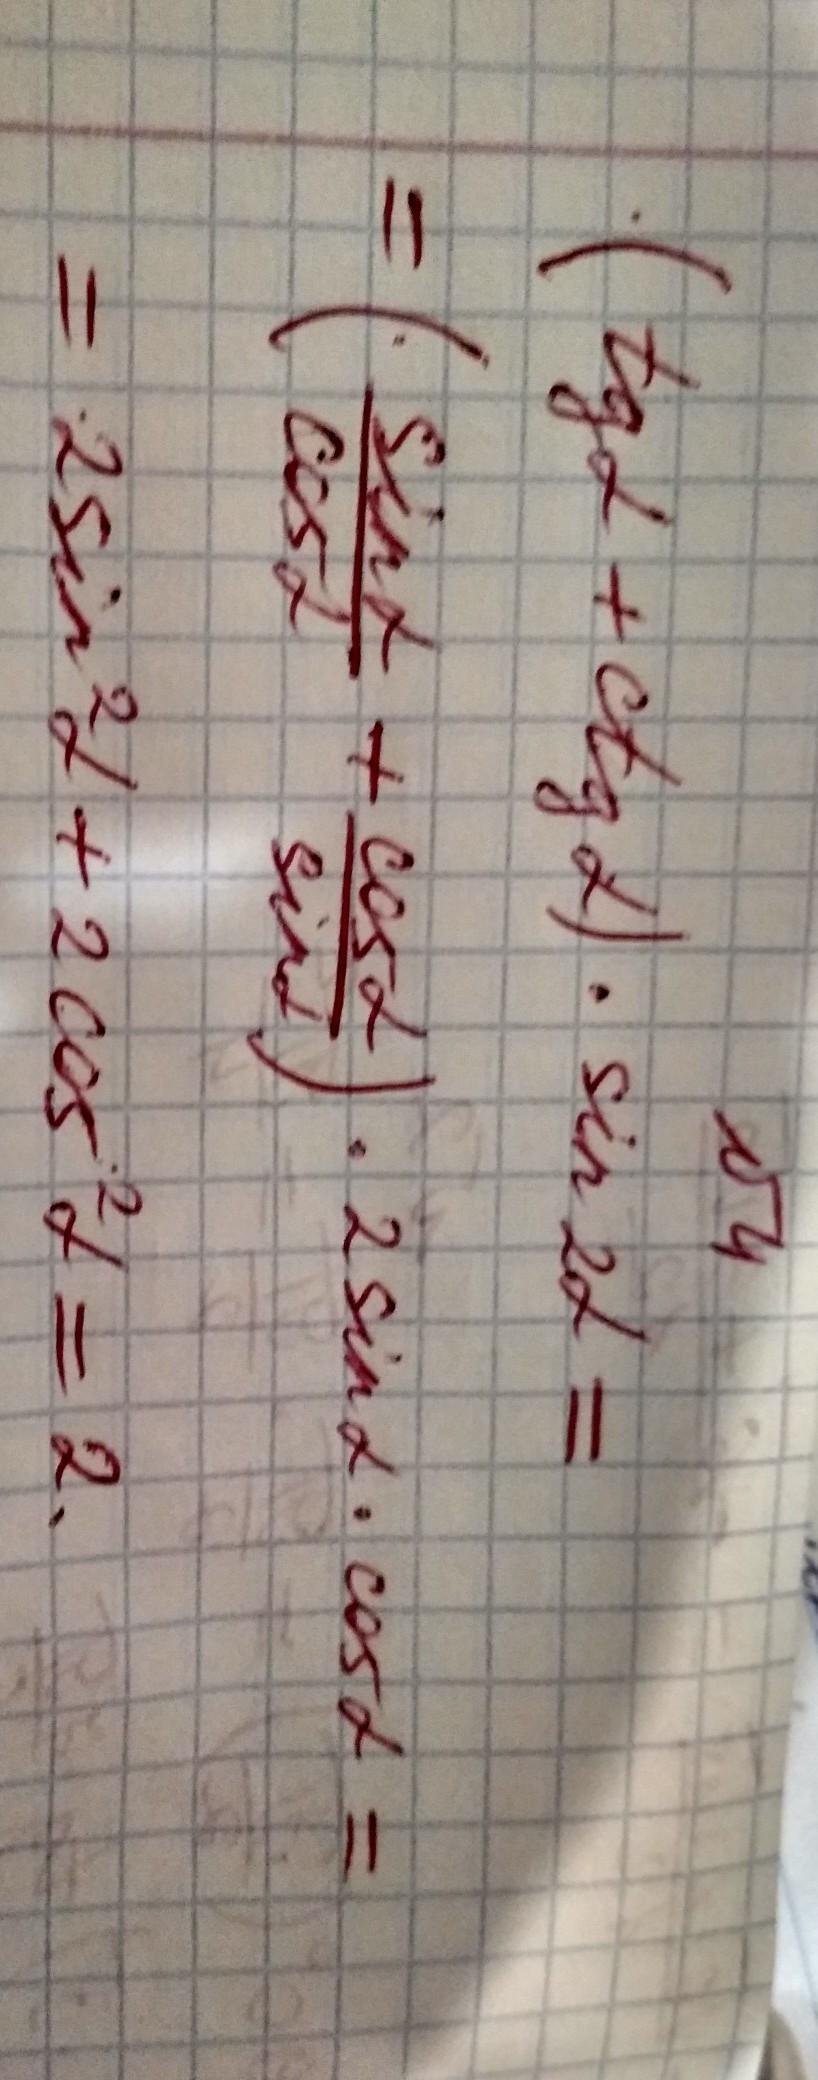 №4
(tgα + ctgα) · sin2α =
= (sinα/cosα + cosα/sinα) · 2sinα · cosα =
= 2sin²α + 2cos²α = 2.